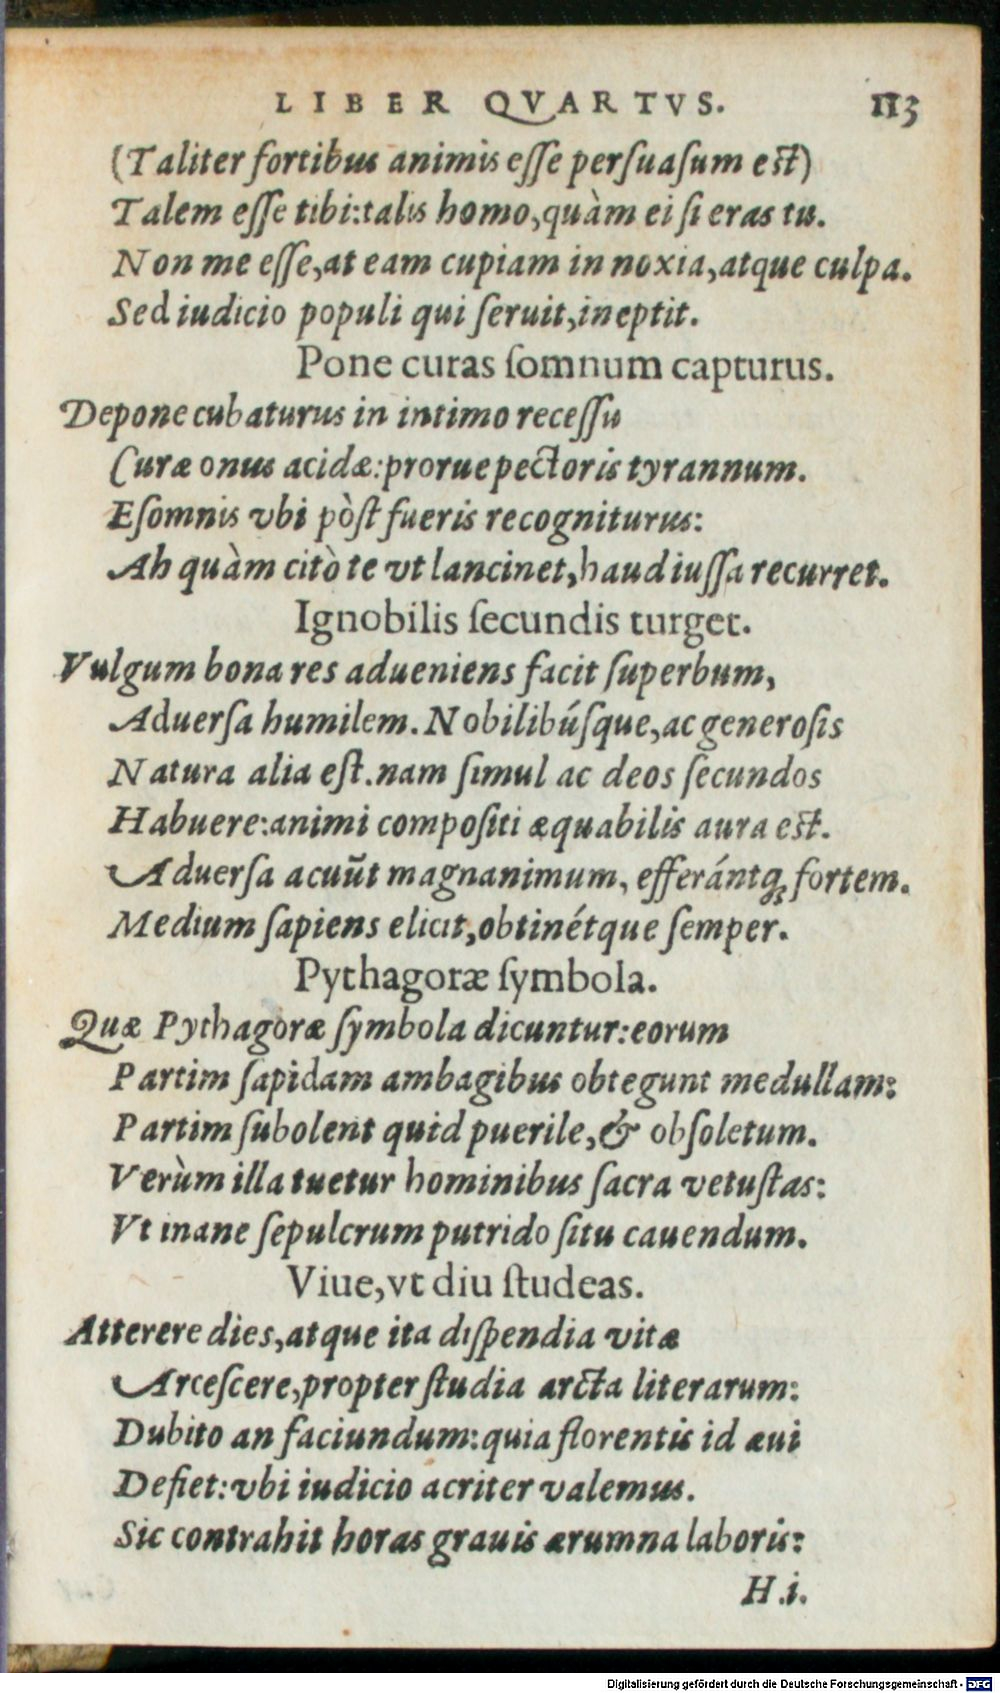 LIBER QVARTVS. 113
(Taliter fortibus animis eſſe perſuaſum eſt)
Talem eſſe tibi:talis homo,quàm ei ſi eras tu.
Non me eſſe,at eam cupiam in noxia,atque culpa.
Sed iudicio populi qui ſeruit,ineptit.
Pone curas ſomnum capturus.
Depone cubaturus in intimo receſſu
Curæ onus acidæ:prorue pectoris tyrannum.
Eſomnis vbi pòſt fueris recogniturus:
Ah quàm citò te vt lancinet,haud iuſſa recurret.
Ignobilis ſecundis turget.
Vulgum bona res adueniens facit ſuperbum,
Aduerſa humilem. Nobilibúſque,ac generoſis
Natura alia eſt.nam ſimul ac deos ſecundos
Habuere:animi compoſiti æquabilis aura eſt.
Aduerſa acuũt magnanimum, efferántꝗ; fortem.
Medium ſapiens elicit,obtinétque ſemper.
Pythagoræ ſymbola.
Quæ Pythagoræ ſymbola dicuntur:eorum
Partim ſapidam ambagibus obtegunt medullam:
Partim ſubolent quid puerile,& obſoletum.
Verùm illa tuetur hominibus ſacra vetuſtas:
Vt inane ſepulcrum putrido ſitu cauendum.
Viue,vt diu ſtudeas.
Atterere dies,atque ita diſpendia vitæ
Arceſcere,propter ſtudia arcta literarum:
Dubito an faciundum:quia florentis id æui
Defiet:vbi iudicio acriter valemus.
Sic contrahit horas grauis ærumna laboris:
H.i.
Digitalisierung gefördert durch die Deutsche Forschungsgemeinschaft - DFG